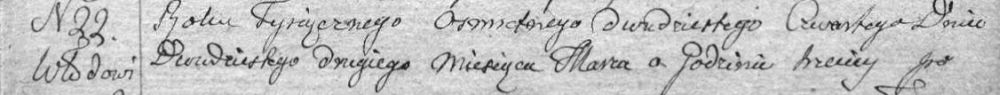 N 22. Roku Tysiącznego Osmsetnego Dwudziestego Czwartego Dnia
Włodowi Dwudziestego drugiego Miesiąca Marca o Godzinie trzeciy po